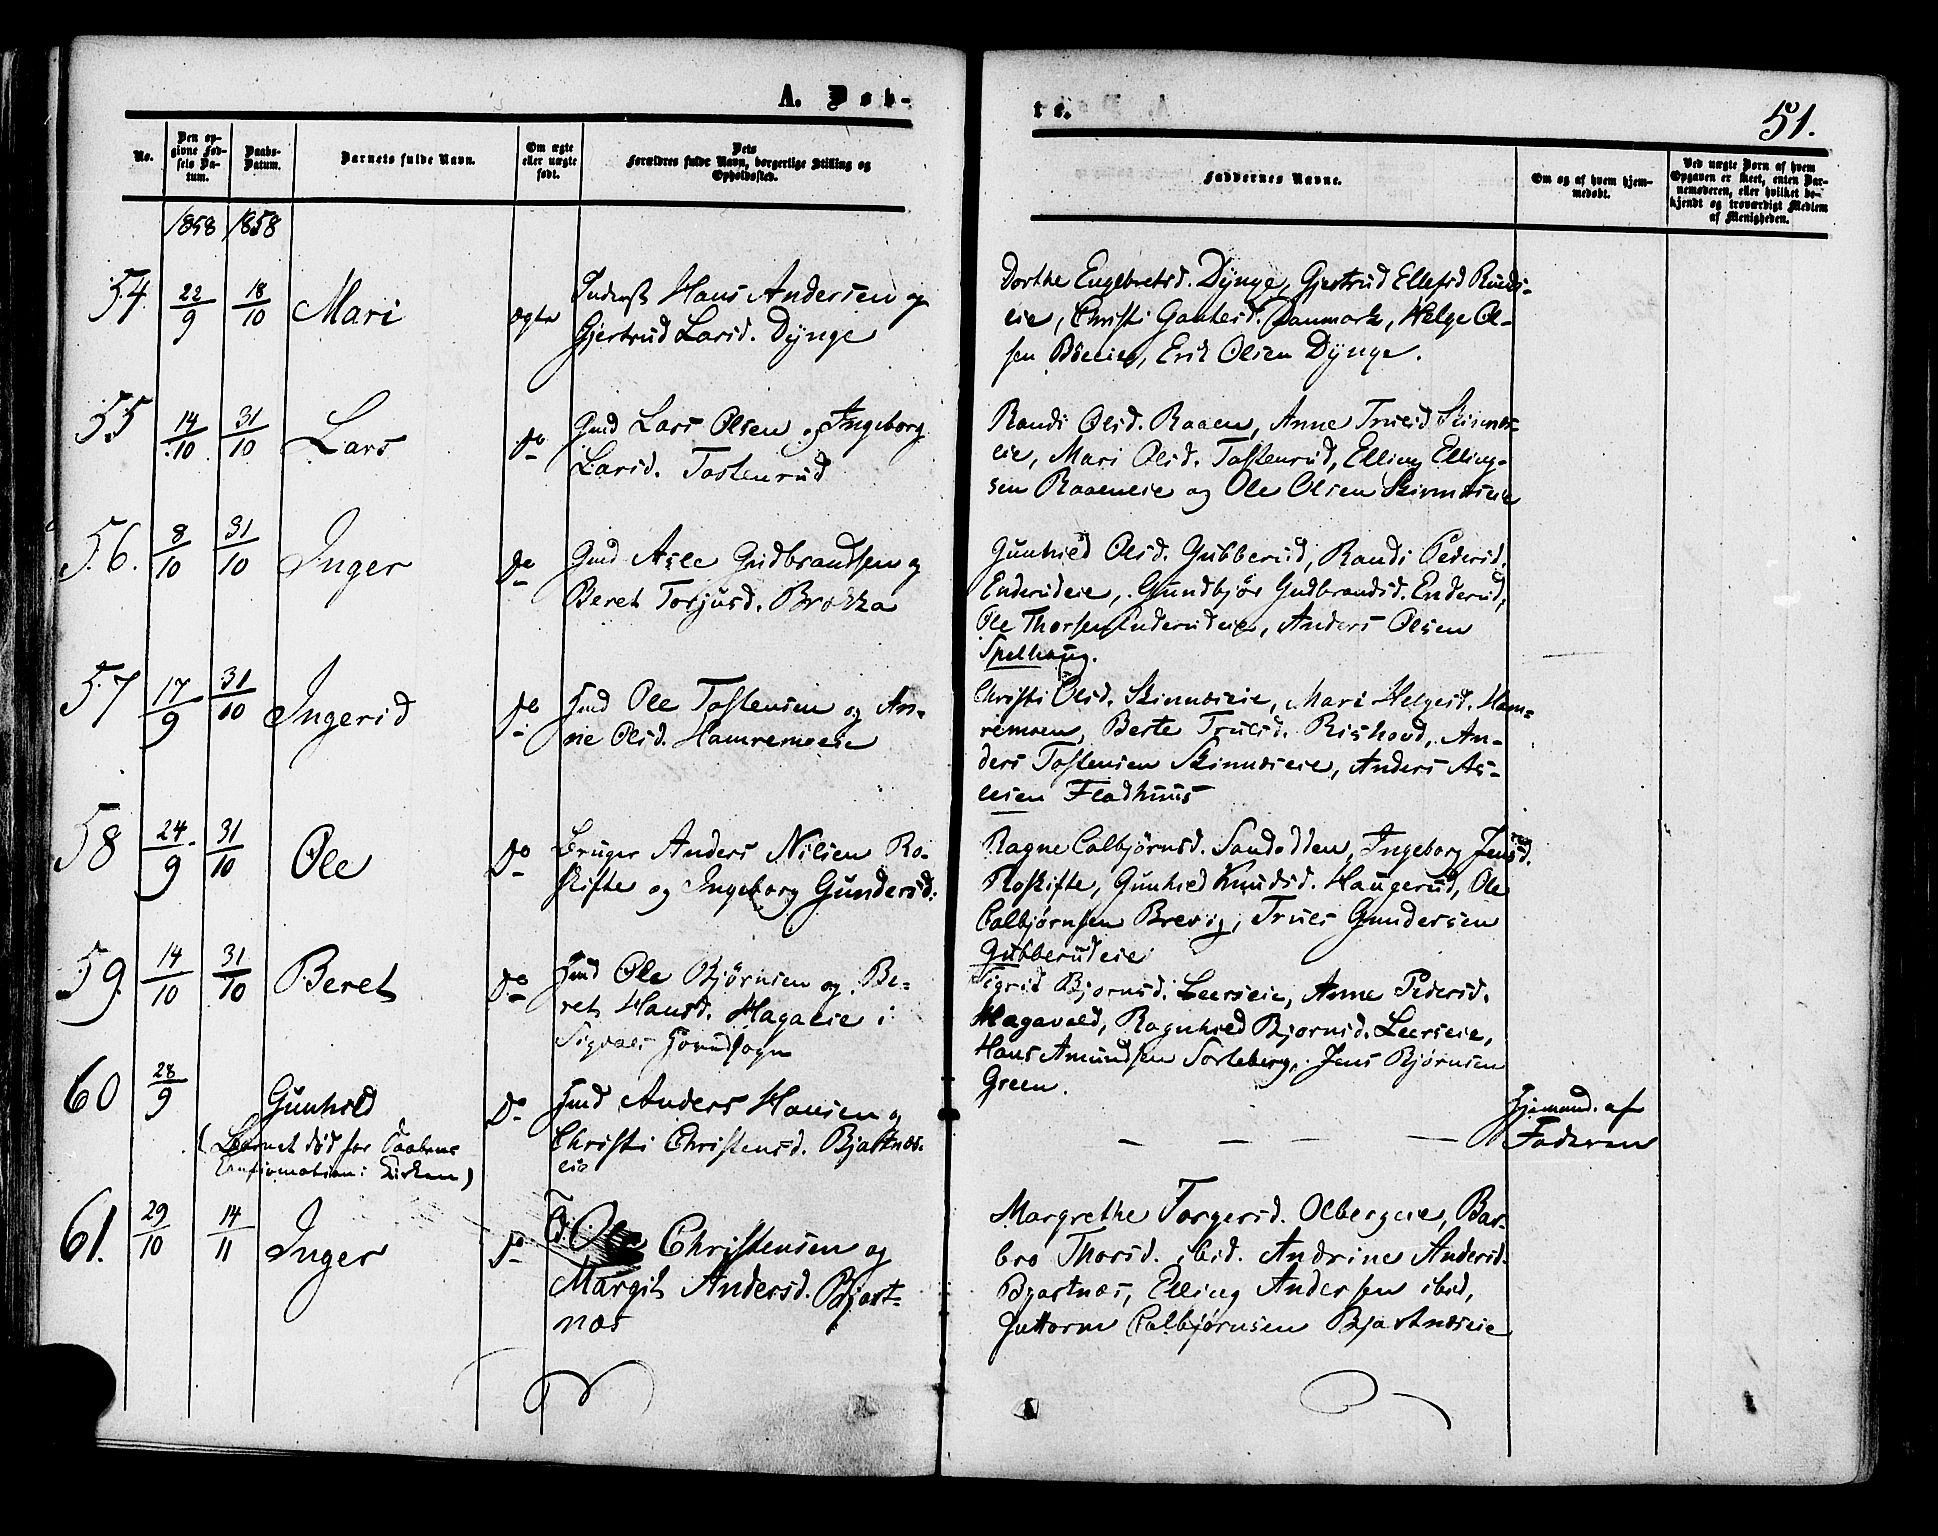 A. Døb-
te.
51.
No.
Den op-
givne Fød-
sels Da-
tum.
Daabs-
Datum.
Barnets fulde Navn.
Om ægte
eller uægte
født.
Dets
Forældres fulde Navn, borgerlige Stilling og
Opholdssted.
Faddernes Navne.
Om og af hvem hjem-
medøbt.
Ved uægte Børn af hvem
Opgaven er skeet, enten Bar-
nemoderen, eller hvilket be-
kjendt og troværdigt Medlem
af Menigheden.
1858 1858
54 22/9 18/10 Mari ægte Inderst Hans Andersen og
Gjertrud Larsd. Dynge
Dorthe Engebretsd. Dynge, Gjertrud Ellefsd Ruuds-
eie, Christi Gautesd. Danmark, Helge Ol-
sen Bøeeie, Erik Olsen Dynge.
55 14/10 31/10 Lars Do Gmd Lars Olsen og Ingeborg
Larsd. Tostenrud
Randi Olsd. Raaen, Anne Truls d Skinnes-
eie, Mari Olsd. Tostenrud, Elling Elling-
sen Raaeneie og Ole Olsen Skinneseie
56. 8/10 31/10 Inger Do Gmd Asle Gudbrandsen og
Beret Torjusd. Brokka
Gunhild Olsd. Gubberud, Randi Pedersd.
Enderudeie, Gundbjør Gudbrandsd. Enderud,
Ole Thorsen Enderudeie, Anders Olsen
Spelhaug.
57 17/9 31/10 Ingerid Do Hmd Ole Tostensen og An-
ne Olsd. Hamremoeie
Christi Olsd. Skinneseie, Mari Helgesd. Ham-
remoen, Berte Trulsd. Rishovd, An-
ders Tostensen Skinneseie, Anders As-
lesen Fladhuus
58 24/9 31/10 Ole Do Bruger Anders Nilsen Ro-
skifte og Ingeborg Gundersd.
Ragne Colbjørnsd. Sandodden, Ingeborg Jensd.
Roskifte, Gunhild Knudsd. Haugerud, Ole
Colbjørnsen Brevig, Truls Gundersen
Gubberudeie
59 14/10 31/10 Beret Do Hmd Ole Bjørnsen og Be-
ret Hansd. Hagaeie i
Sigdals Hovedsogn
Sigrid Bjørnsd. Leerseie, Anne Pedersd.
Hagavold, Ragnhild Bjørnsd. Leerseie,
Hans Amundsen Sorteberg, Jens Bjørnsen
Green.
60 28/9 Gunhild Do Hmd Anders Hansen og
Christi Christensd. Bjastnæs-
eie
(Barnet død før Daabens
Confirmation i Kirken)
Hjemmed. af
Faderen
61. 29/10 14/11 Inger Do Christensen og
Margit Andersd. Bjast-
næs
Margrethe Torgersd. Olbergeie, Bar-
bro Thorsd. ibid. Andrine Andersd.
Bjastnæs, Elling Andersen ibid,
Guttorm Colbjørnsen Bjastnæseie